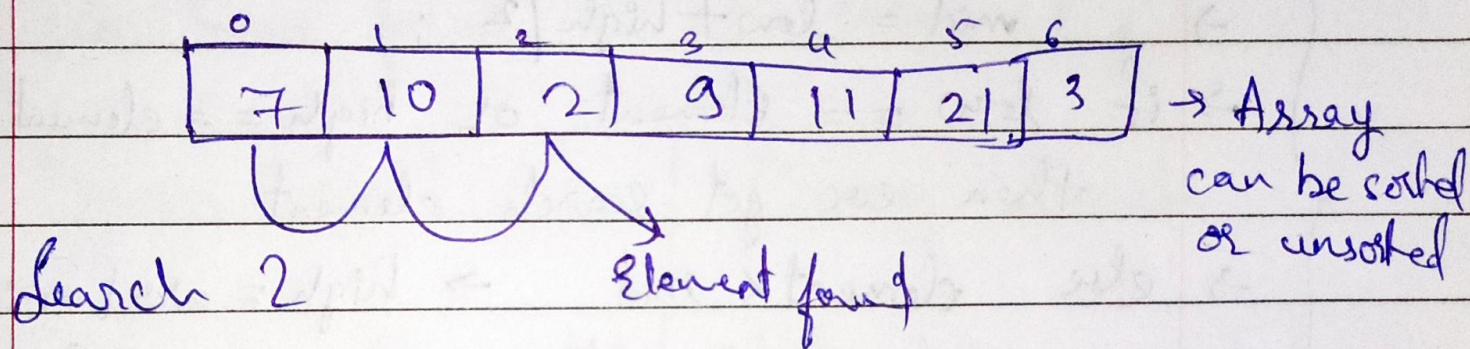 0 1 2 3 4 5 6
7 10 2 9 11 21 3 → Array
can be sorted
or unsorted
Search 2 Element found